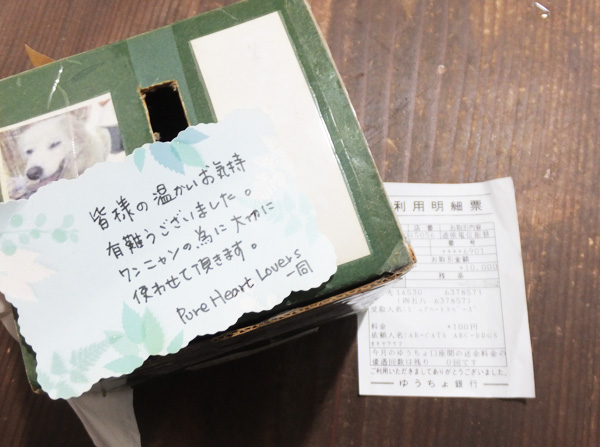 皆様の温かいお気持
有難うございました。
ワンニャンの為に大切に
使わせて頂きます。
Pure Heart Lovers
一同
利用明細票
お取引金額
*10,000
残高
料金 *100円
今月のゆうちょ口座間の送金料金の
優遇回数は残り 0回です
ご利用いただきましてありがとうございました。
ゆうちょ銀行